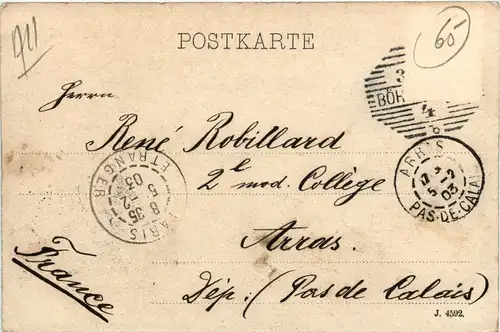 POSTKARTE
65
Herrn
3
BÖR
4
René Robillard
2e mod. Collège
ARRAS
5-2
03
PAS-DE-CALAI
PARIS
ETRANGER
8 35
5 -2
03
Arras.
Dép: (Pas de Calais)
France
J. 4592.